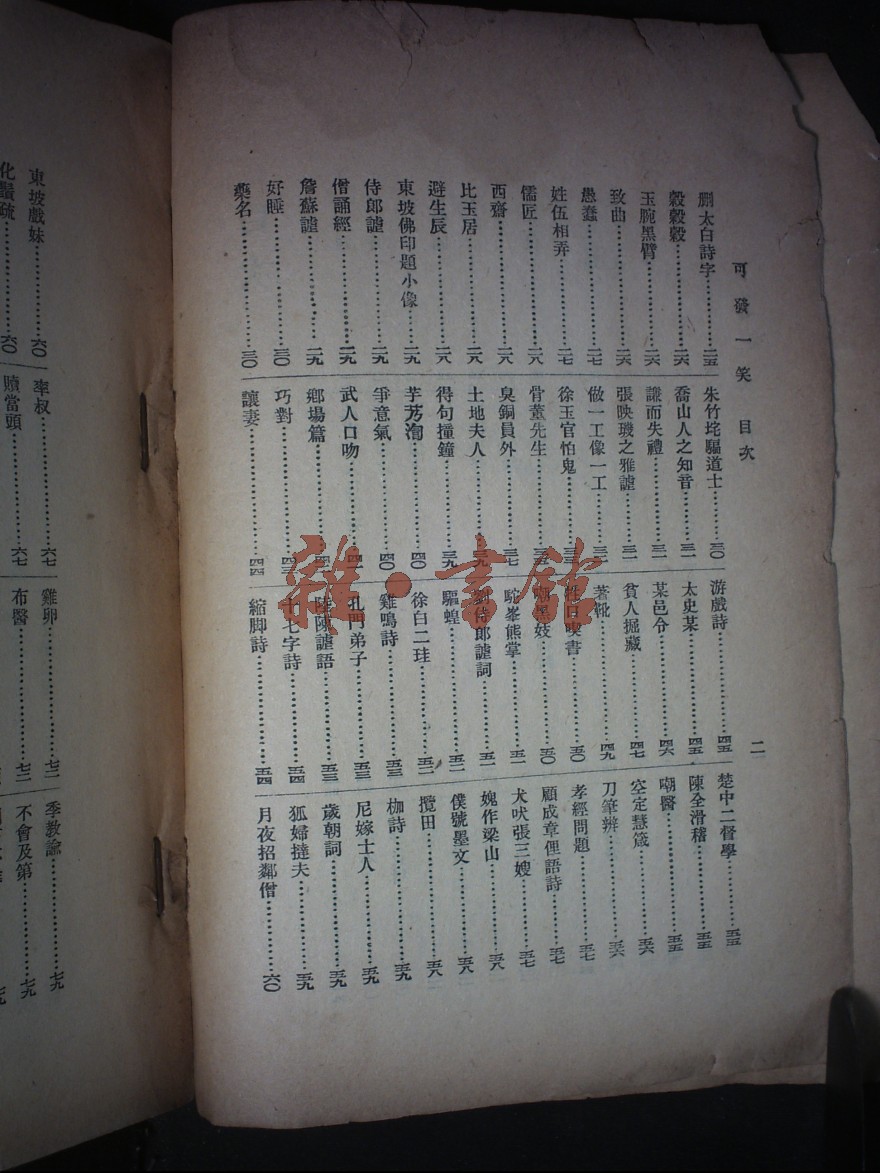 可發一笑 目次
二
刪太白詩字……二五
穀穀穀……二六
玉腕黑臂……二六
致曲……二六
愚蠢……二七
姓伍相弄……二七
儒匠……二八
西齋……二八
比玉居……二八
避生辰……二八
東坡佛印題小像……二九
侍郎謔……二九
僧誦經……二九
詹蘇謔……二九
好睡……三〇
藥名……三〇
朱竹垞驅道士……三〇
喬山人之知音……三一
謙而失禮……三一
張映璣之雅謔……三一
做一工像一工……三二
徐玉官怕鬼
骨董先生
臭銅員外……三七
土地夫人……三九
得句撞鐘……三九
芋艿洵……四〇
爭意氣……四〇
武人口吻
鄉場篇
巧對
讓妻……四四
游戲詩……四五
太史某……四五
某邑令……四六
貧人掘藏……四七
著靴……四九
性日喫書……五〇
嘲黑妓……五〇
駝峯熊掌……五一
劉侍郎謔詞……五一
驅蝗……五二
徐白二珪……五二
雞鳴詩……五三
孔門弟子……五三
陸陳謔語……五三
十七字詩……五四
縮脚詩……五四
楚中二督學……五五
陳全滑稽……五五
嘲醫……五五
空定慧箴……五六
刀筆辨……五六
孝經問題……五七
顧成章俚語詩……五七
犬吠張三嫂……五七
媿作梁山……五八
僕號墨文……五八
攬田……五八
枷詩……五九
尼嫁士人……五九
歲朝詞……五九
狐婦撻夫……五九
月夜招鄰僧……六〇
東坡戲妹……六〇
化蠶疏……六〇
率叔……六七
贖當頭……六七
雞卵……七二
布醫……七二
季教諭……七九
不會及第……七九
雜·書館